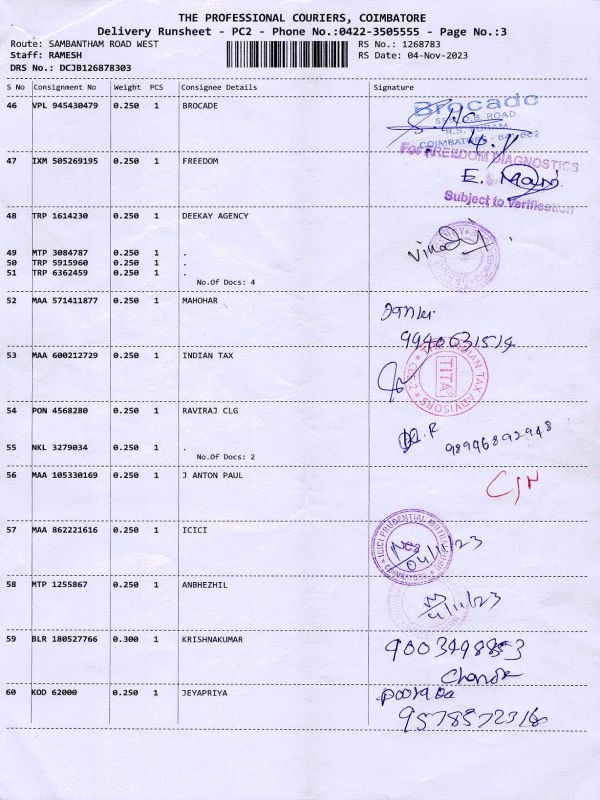 THE PROFESSIONAL COURIERS, COIMBATORE
Delivery Runsheet - PC2 - Phone No.:0422-3505555 - Page No.:3
Route: SAMBANTHAM ROAD WEST RS No.: 1268783
Staff: RAMESH RS Date: 04-Nov-2023
DRS No.: DCJB126878303
S No Consignment No Weight PCS Consignee Details Signature
46 VPL 945430479 0.250 1 BROCADE
Brocade
R.S. PURAM,
COIMBATORE
47 IXM 505269195 0.250 1 FREEDOM
For FREEDOM DIAGNOSTICS
E. Mani
Subject to Verification
48 TRP 1614230 0.250 1 DEEKAY AGENCY
49 MTP 3084787 0.250 1 .
50 TRP 5915960 0.250 1 .
51 TRP 6362459 0.250 1 .
No.Of Docs: 4
52 MAA 571411877 0.250 1 MAHOHAR
9940631514
53 MAA 600212729 0.250 1 INDIAN TAX
TITA
54 PON 4568280 0.250 1 RAVIRAJ CLG
55 NKL 3279034 0.250 1 .
No.Of Docs: 2
98946892948
56 MAA 105330169 0.250 1 J ANTON PAUL
57 MAA 862221616 0.250 1 ICICI
ICICI PRUDENTIAL MUTUAL
COIMBATORE
04/11/23
58 MTP 1255867 0.250 1 ANBHEZHIL
4/11/23
59 BLR 180527766 0.300 1 KRISHNAKUMAR
9003498853
60 KOD 62000 0.250 1 JEYAPRIYA